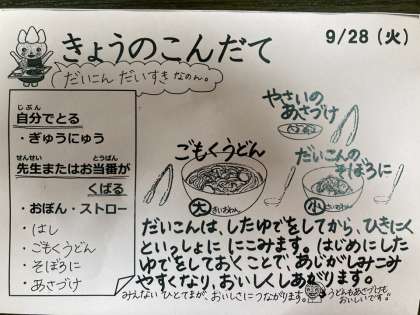 きょうのこんだて
9/28（火）
だいこん だいすき なのん。
じぶん
自分でとる
・ぎゅうにゅう
せんせい とうばん
先生またはお当番が
くばる
・おぼん・ストロー
・はし
・ごもくうどん
・そぼろに
・あさづけ
やさいの
あさづけ
ごもくうどん
大 きいおわん
だいこんの
そぼろに
小 さいおわん
だいこんは、したゆでをしてから、ひきにく
といっしょに にこみます。はじめにした
ゆでをしておくことで、あじがしみこみ
やすくなり、おいしくしあがります。
みえない ひとてまが、おいしさにつながります。
うどんもあさづけも
おいしいです。